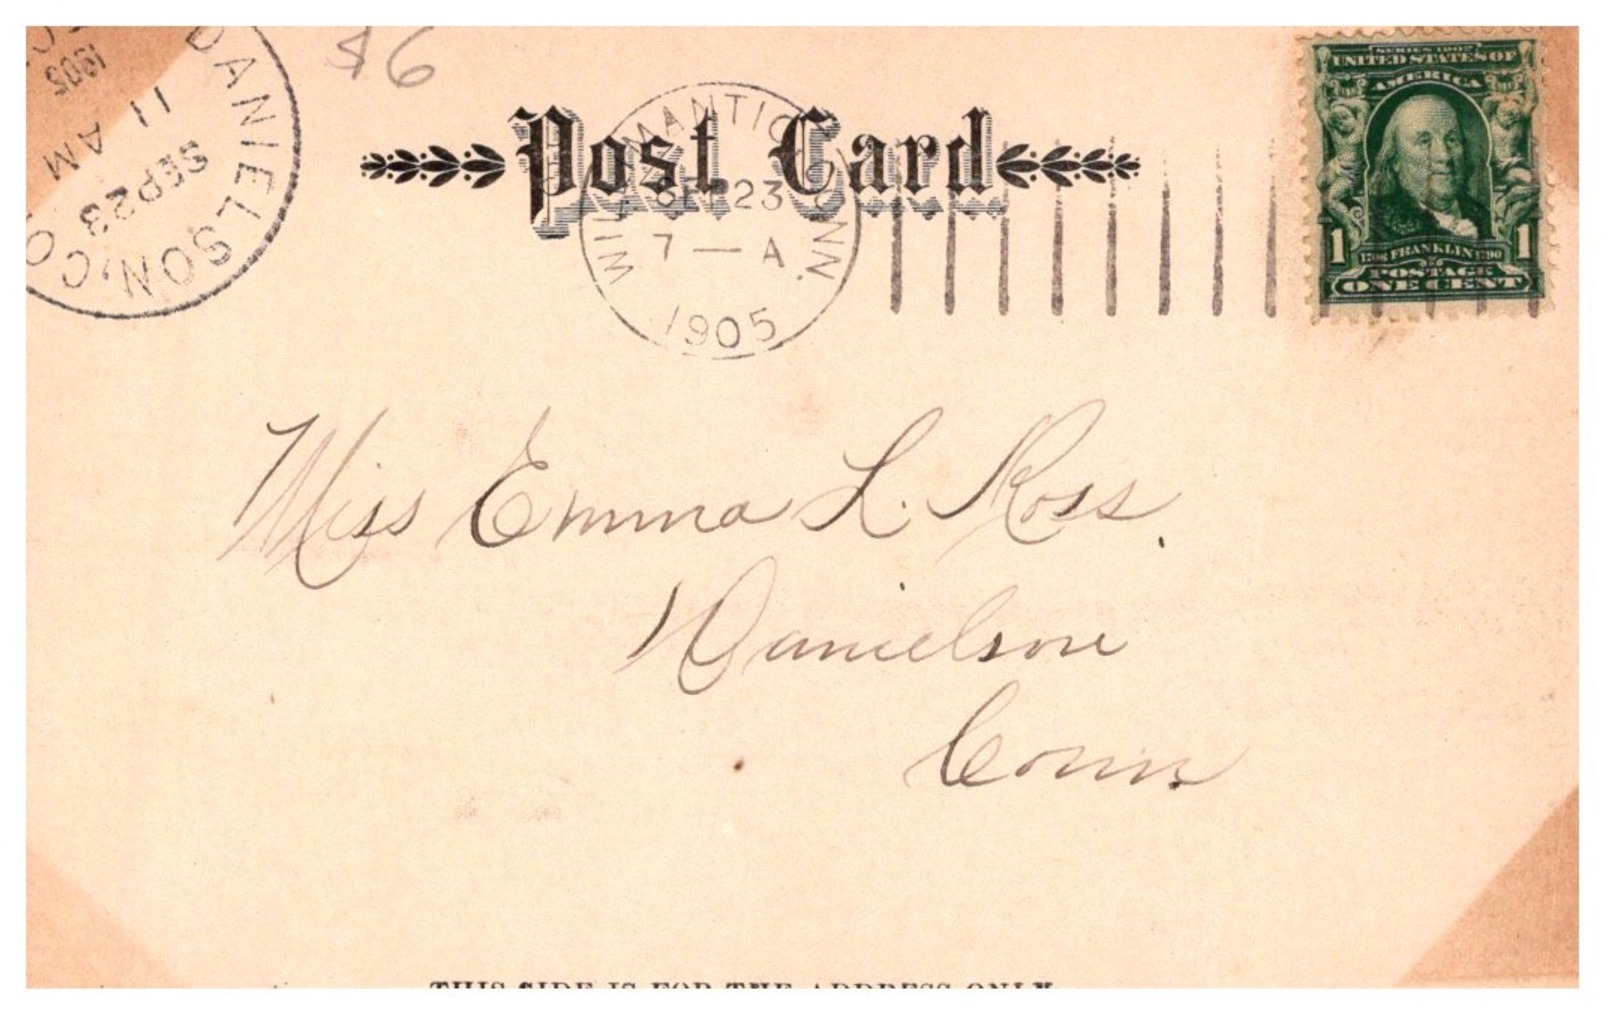 DANIELSON, CO
SEP 23
11 AM
1905
$6
Post Card
WILLIMANTIC CONN.
SEP 23
7 — A
1905
SERIES 1902
UNITED STATES OF
AMERICA
1 1706 FRANKLIN 1790 1
POSTAGE
ONE CENT
Miss Emma L. Ross.
Danielson
Conn
THIS SIDE IS FOR THE ADDRESS ONLY